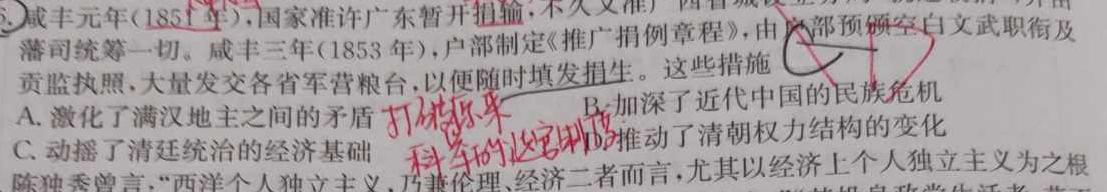 咸丰元年(1851年),国家准许广东暂开捐输,不久又准广西省
藩司统筹一切。咸丰三年(1853年),户部制定《推广捐例章程》,由户部预颁空白文武职衔及
贡监执照,大量发交各省军营粮台,以便随时填发捐生。这些措施
A. 激化了满汉地主之间的矛盾
B. 加深了近代中国的民族危机
C. 动摇了清廷统治的经济基础
D. 推动了清朝权力结构的变化
打破原来
科举的选官制度
陈独秀曾言:“西洋个人独立主义,乃兼伦理、经济二者而言,尤其以经济上个人独立主义为之根